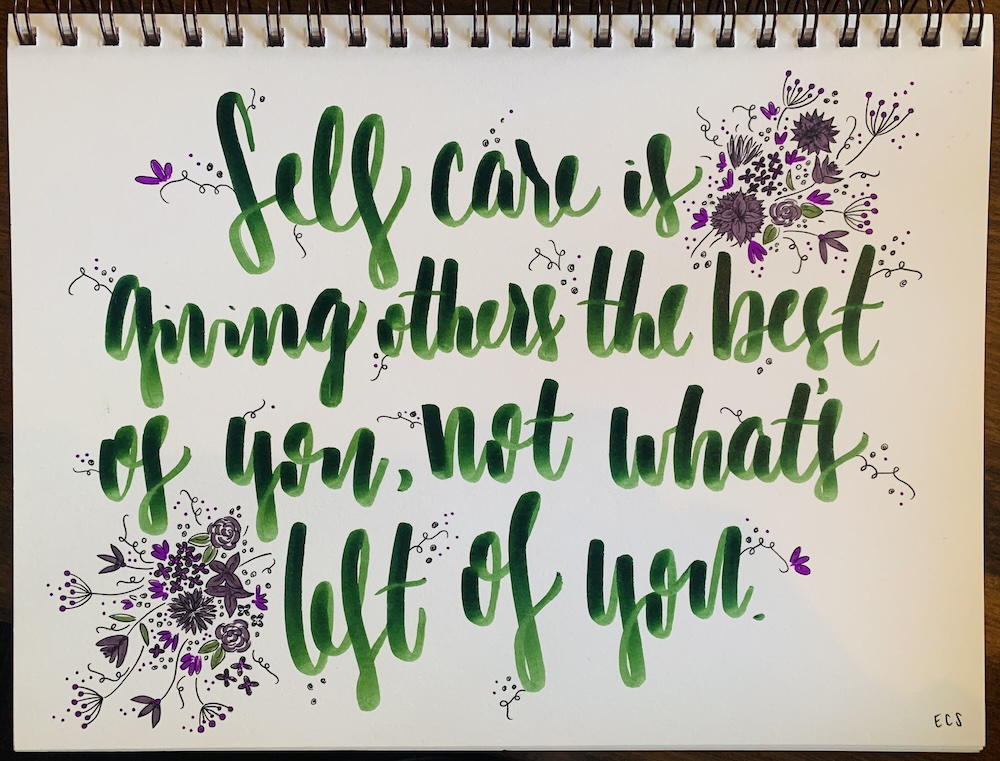 Self care is
giving others the best
of you, not what's
left of you.
ECS